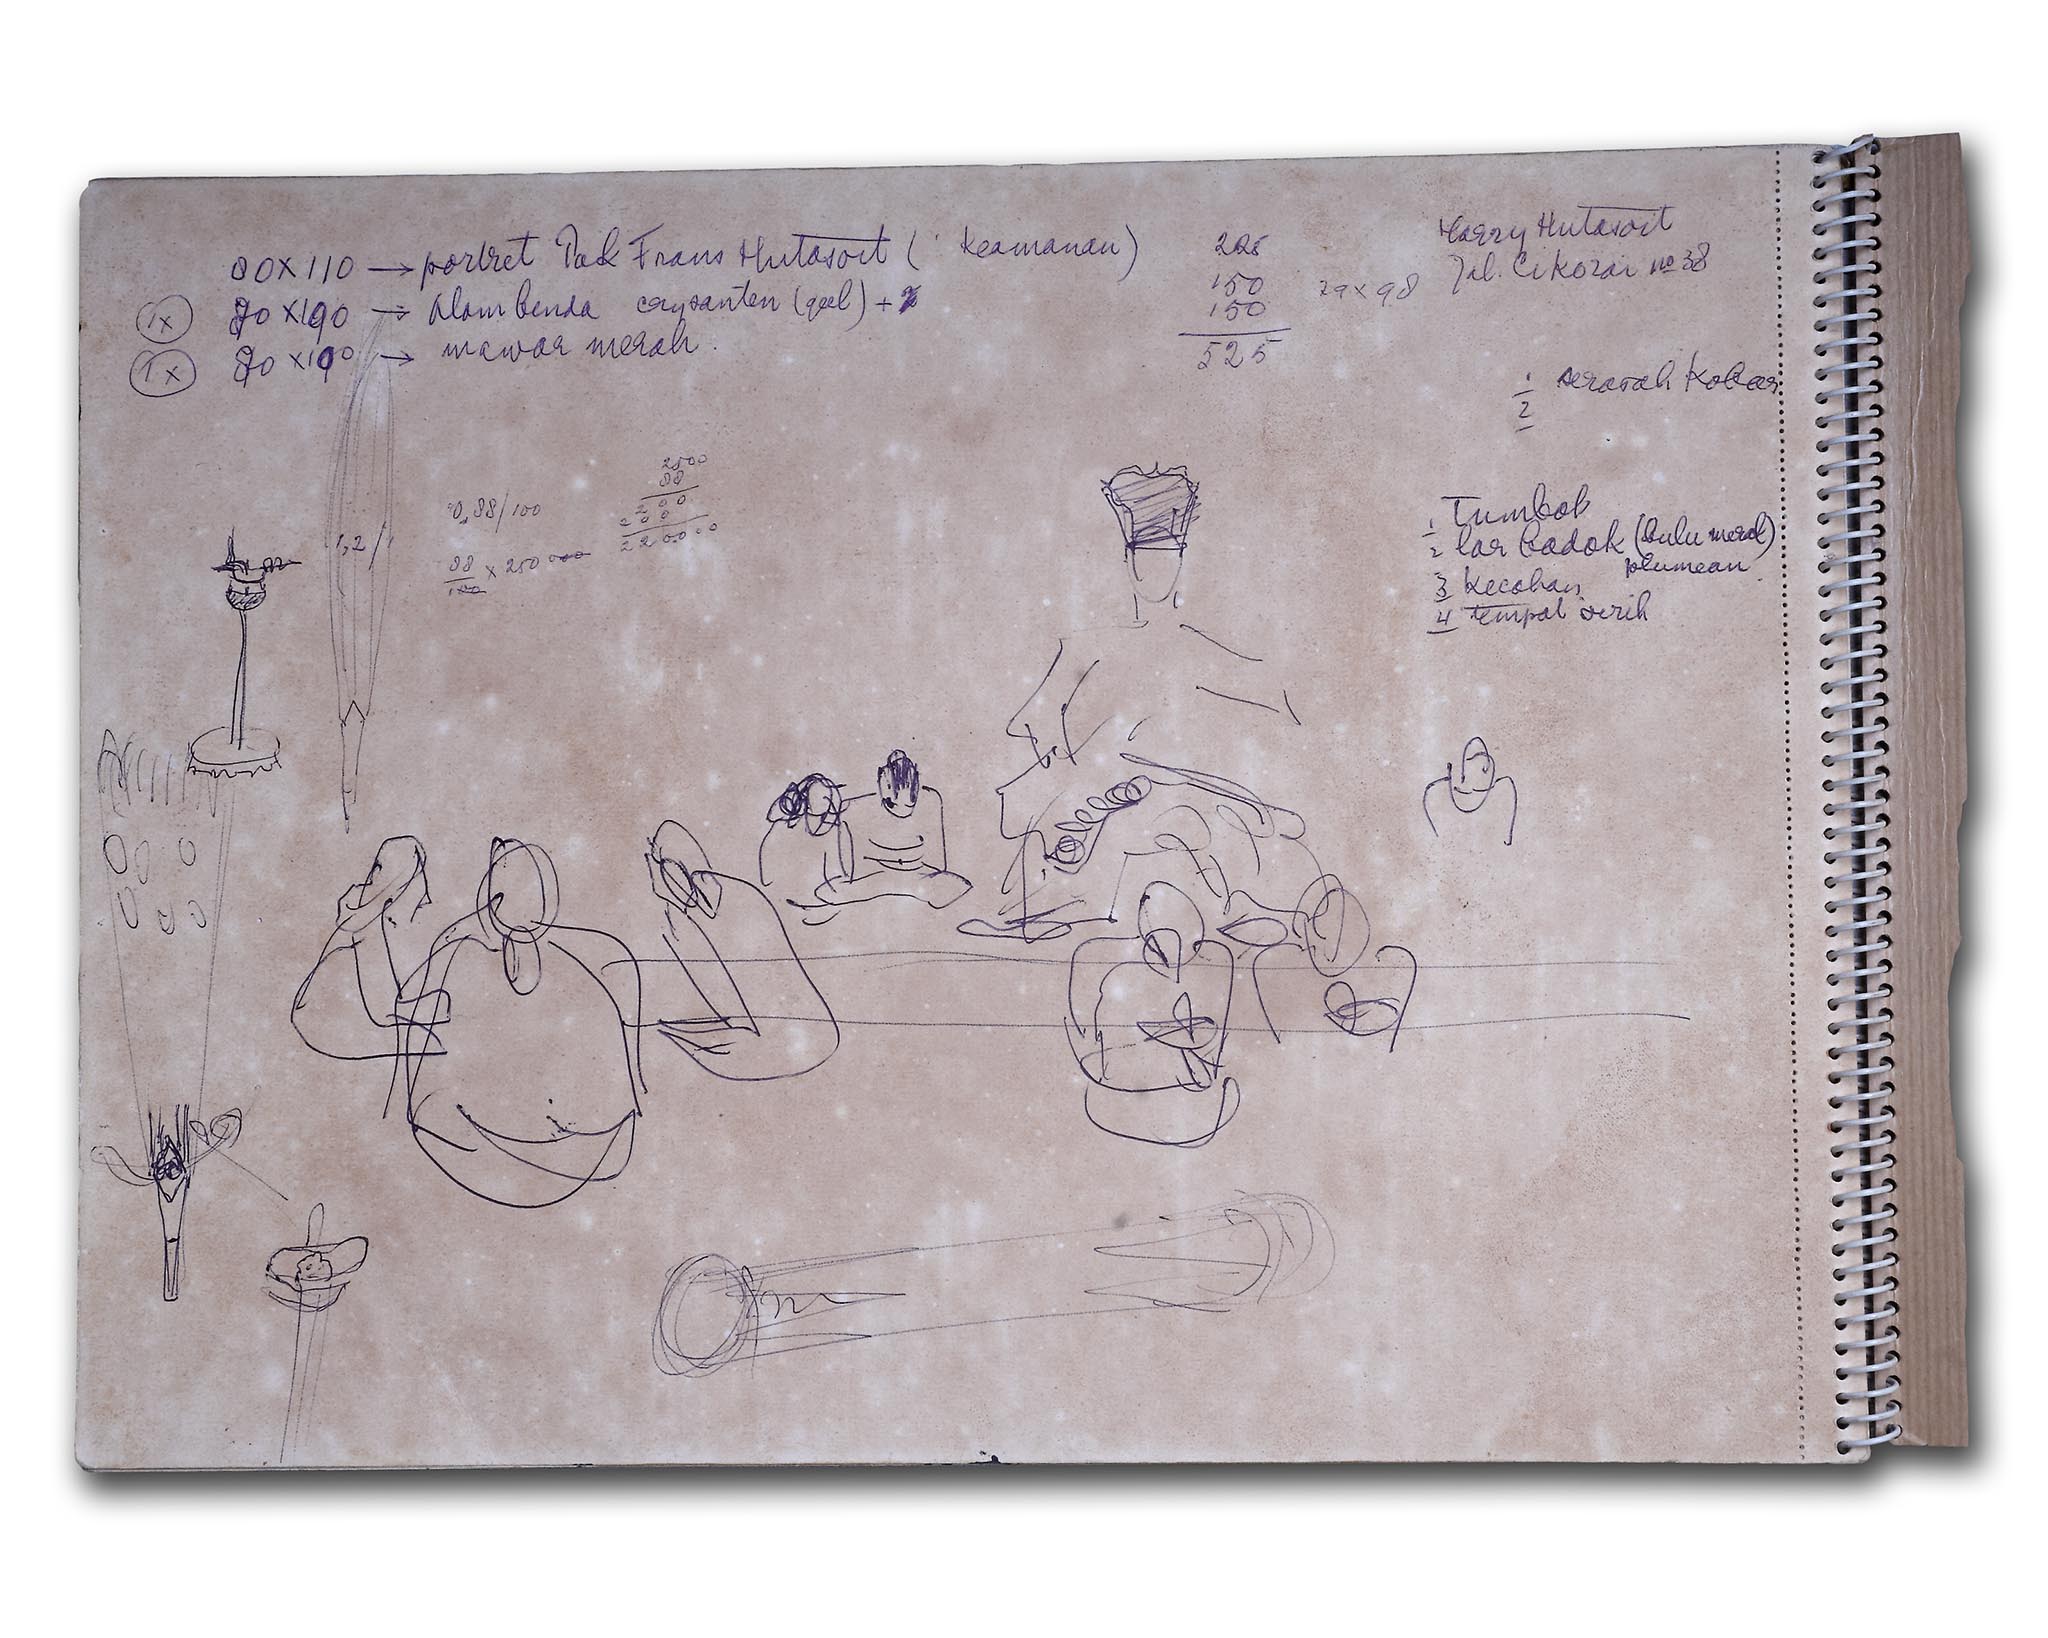 80 x 110 → portret Pak Frans Hutasoit ( keamanan)
1x 80 x 100 → Alam benda crysanten (geel) +
1x 80 x 100 → mawar merah.
225
150
150
525
79 x 98
Harry Hutasoit
Jal. Cikorai no 38
1
2
1,2/1
0,88/100
88 x 250
100
2500
88
200
200
220000
1 Tumbak
2 lar badak (bulu merak)
plumean
3 Kecohan
4 tempat sirih